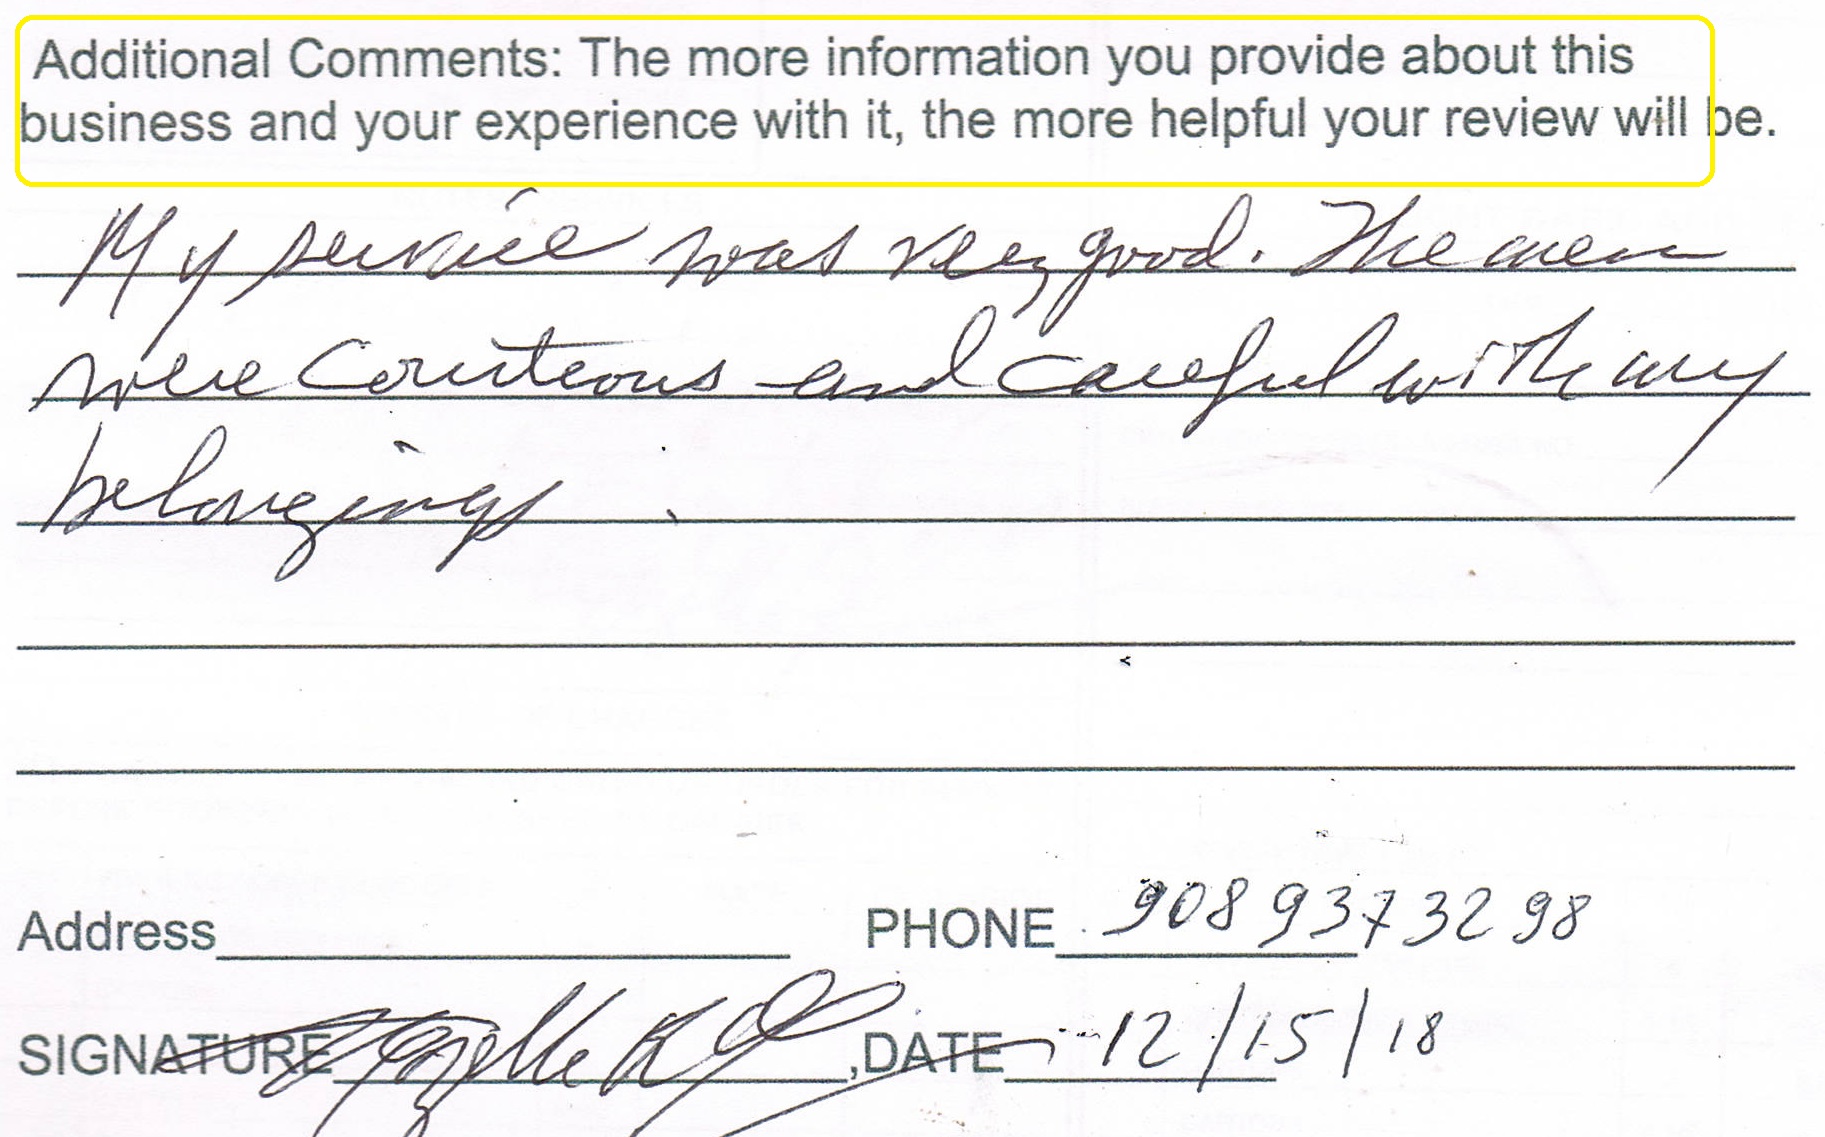 Additional Comments: The more information you provide about this
business and your experience with it, the more helpful your review will be.
My service was very good. The men
were courteous and careful with my
belongings.
Address PHONE 908 937 3298
SIGNATURE ,DATE 12/15/18